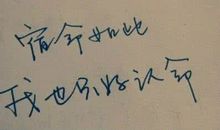 宿命如此
我也只好认命